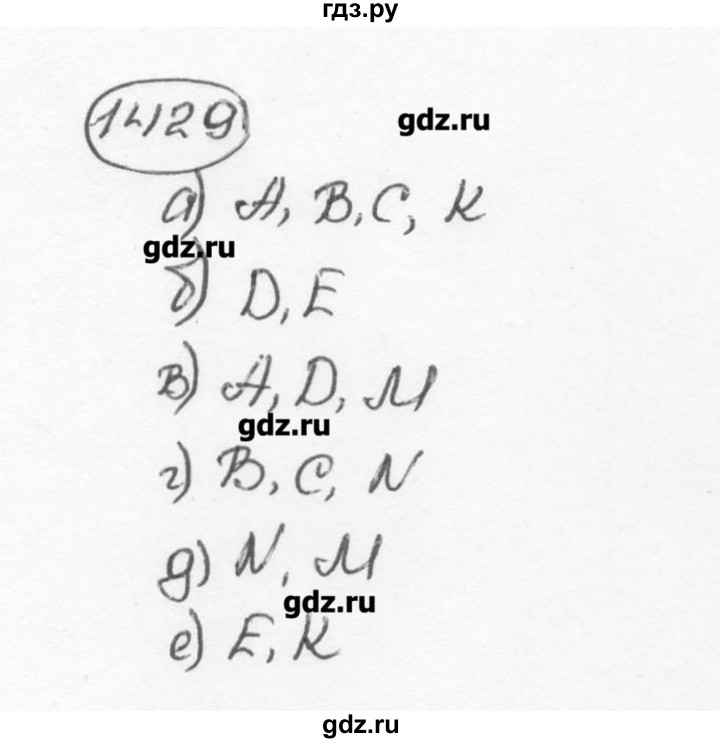 гдз.ру
1429
gdz.ru
а) A, B, C, K
gdz.ru
б) D, E
в) A, D, M
gdz.ru
г) B, C, N
д) N, M
gdz.ru
е) E, K
gdz.ru